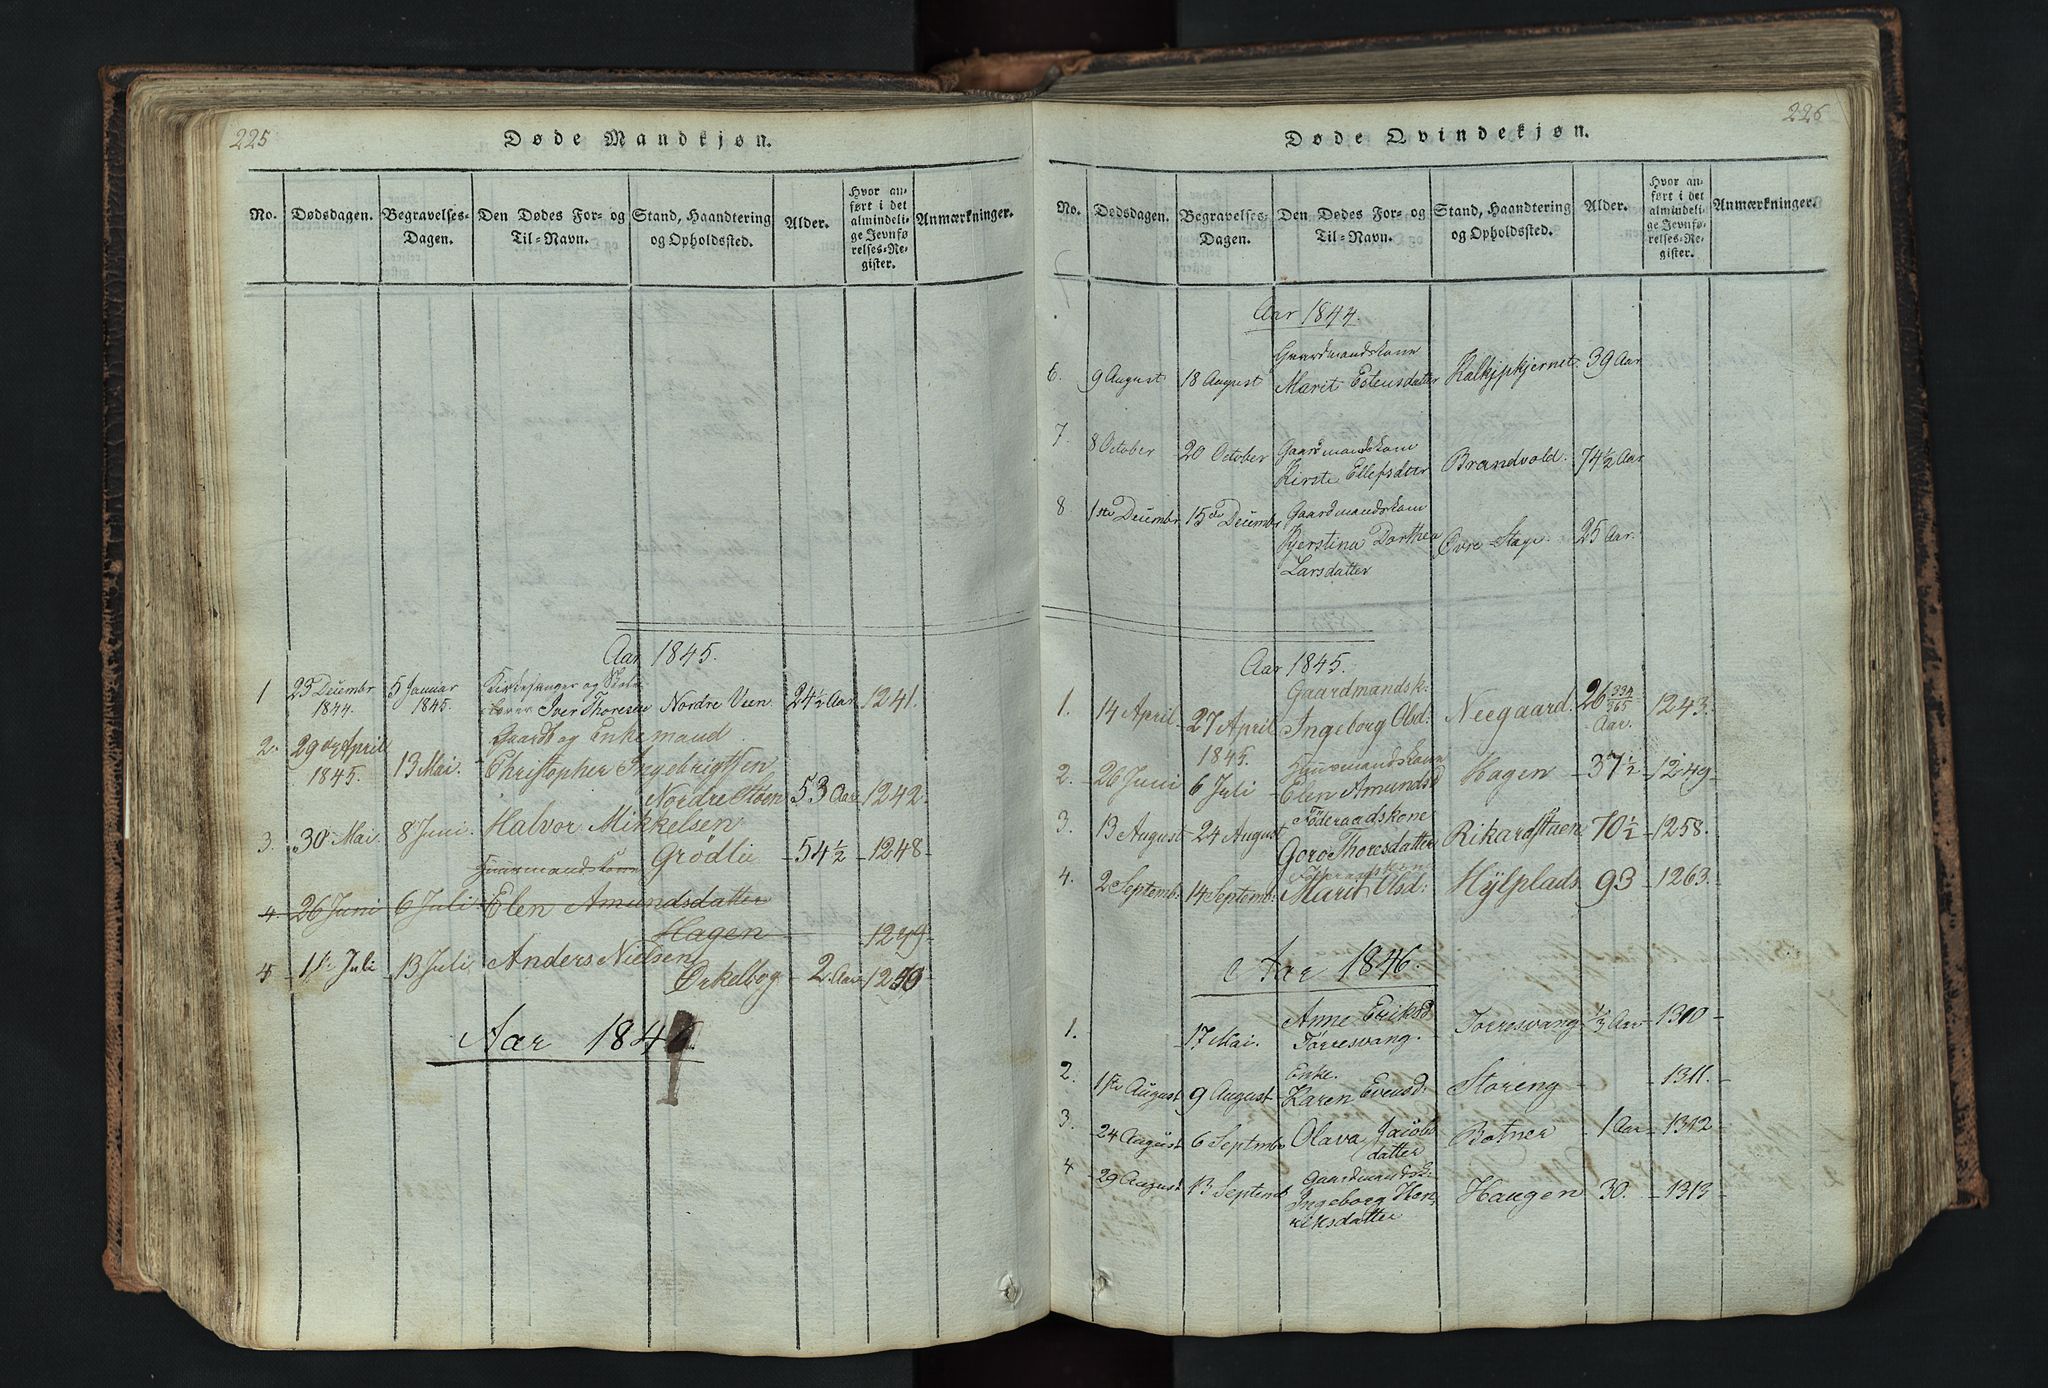 225
Døde Mandkjøn.
No. Dødsdagen. Begravelses-Dagen. Den Dødes For- og Til-Navn. Stand, Haandtering og Opholdssted. Alder. Hvor anført i det almindelige Jevnførelses-Register. Anmærkninger.
Aar 1845.
1 23 Decembr 1844. 5 Januar 1845. Kirkesanger og Skolelærer Iver Thoresen Nordre Veen 24½ Aar 1241.
2. 29 April 1845. 13 Mai. Gaardb og Enkemand Christopher Ingebrigtsen Nordre Støen 53 Aar 1242.
3. 30 Mai. 8 Juni. Halvor Mikkelsen Grödlie 54½ 1248
4. 26 Juni 6 Juli Huusmandskone Elen Amundsdatter Hagen 1249
4 1ste Juli 13 Juli Anders Nielsen Orkelbog 2. Aar 1250
Aar 184
226
Døde Qvindekjøn.
No. Dødsdagen. Begravelses-Dagen. Den Dødes For- og Til-Navn. Stand, Haandtering og Opholdssted. Alder. Hvor anført i det almindelige Jevnførelses-Register. Anmærkninger.
Aar 1844.
6. 9 August 18 August Gaardmandskone Marit Estensdatter 39 Aar
7. 8 October 20 October Gaardmandskone Kirste Ellefsdter Brandvold. 74½ Aar
8 1ste Decembr 15de Decembr Gaardmandskone Kjerstina Dorthea Larsdatter Övre Stage. 25 Aar.
Aar 1845.
1. 14 April 27 April 1845. Gaardmandsk: Ingeborg Olsd: Neegaard. 26 334/365 Aar. 1243.
2. 26 Juni 6 Juli Huusmandskone Elen Amundsd Hagen 37½ 1249
3. 13 August 24 August Föderaadskone Goro Thoresdatter Rikardstuen 70½ 1258.
4. 2 Septemb. 14 Septemb. Marit Olsd: Hÿlplads 93 1263.
Aar 1846.
1. 17 Mai. Anne Eriksd Törresvang. Torresvang ⅓ Aar 1310
2. 1ste August 9 August Enke. Karen Evensd: Storeng 1311.
3. 24 August 6 Septmbr Olava Jacobsdatter Botner 1 Aar 1312
4 29 August 13 Septemb Gaardmandsk: Ingeborg Henriksdatter Haugen 30. 1313